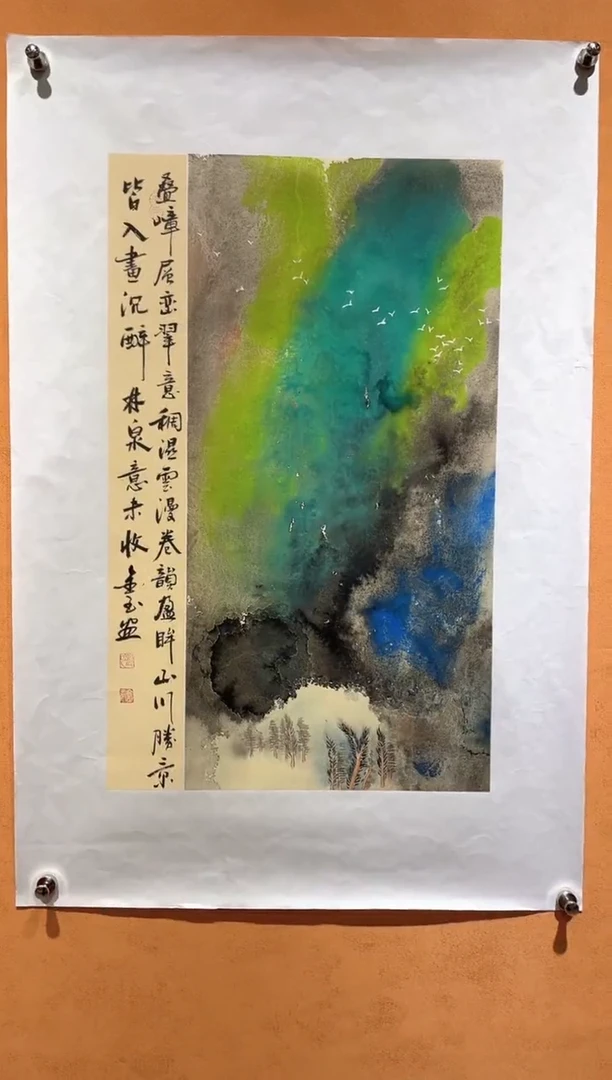 叠嶂层峦翠意稠湿雲漫卷韻盈眸山川勝景
皆入畫沉醉林泉意未收